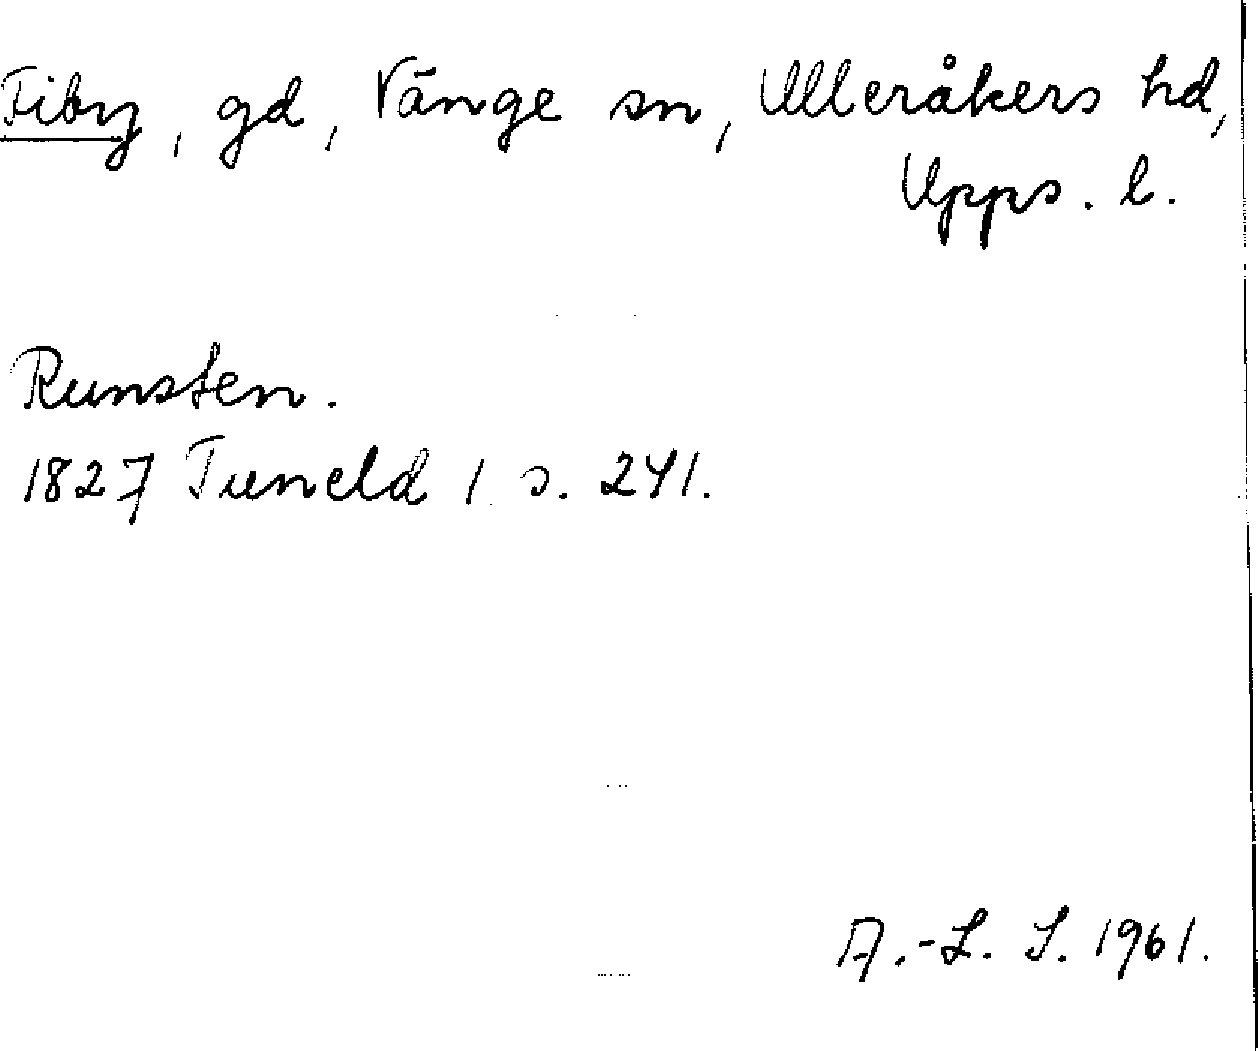 Fiby, gd, Vänge sn, Ulleråkers hd,
Upps. l.
Runsten.
1827 Tuneld 1 s. 241.
A.-L. S. 1961.